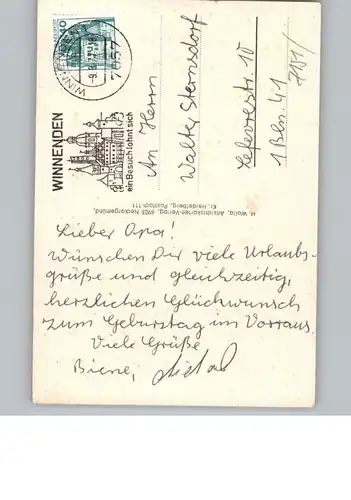 40
WINNENDEN
7057
WINNENDEN
ein Besuch lohnt sich
An Herrn
Walter Sternsdorf
Lefevrestr. 10
1 Bln. 41
H. Wolla, Ansichtskarten-Verlag, 6903 Neckargemünd,
Kr. Heidelberg, Postfach 111
Lieber Opa!
Wünschen Dir viele Urlaubs-
grüße und gleichzeitig,
herzlichen Glückwunsch
zum Geburstag im Vorraus.
Viele Grüße
Biene,